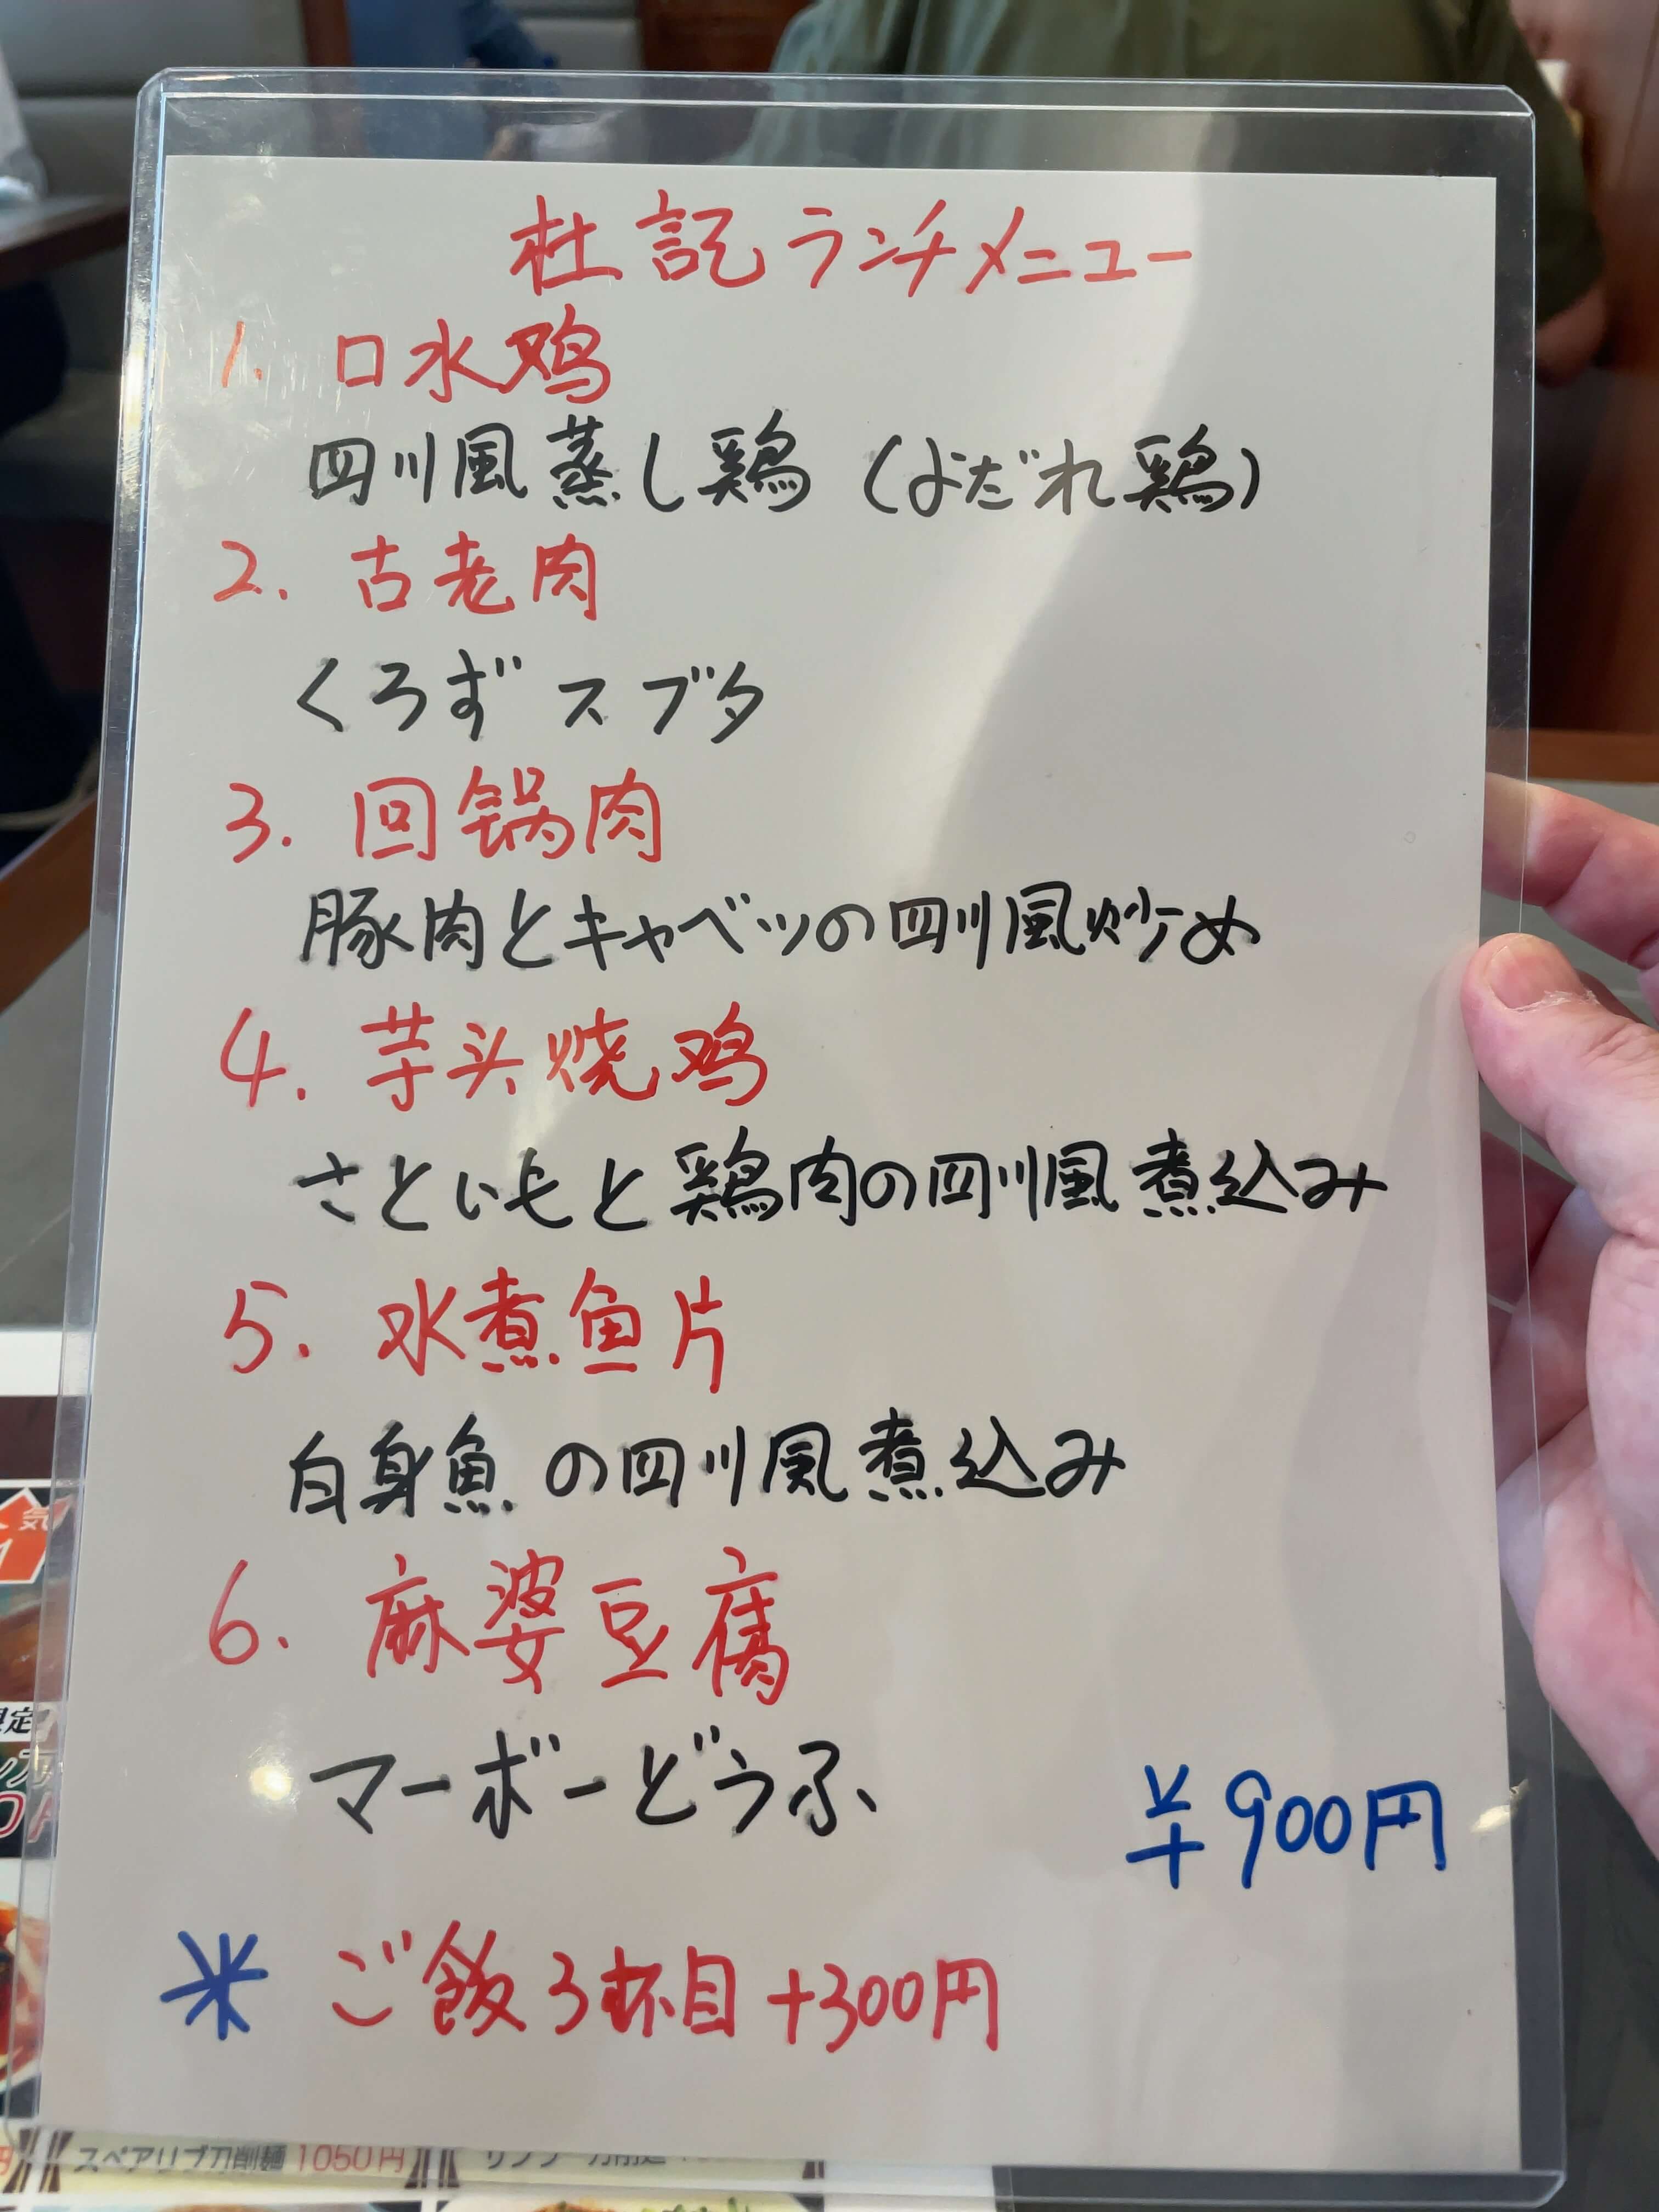 杜記ランチメニュー
1. 口水鸡
四川風蒸し鶏（よだれ鶏）
2. 古老肉
くろずスブタ
3. 回锅肉
豚肉とキャベツの四川風炒め
4. 芋头烧鸡
さといもと鶏肉の四川風煮込み
5. 水煮鱼片
白身魚の四川風煮込み
6. 麻婆豆腐
マーボーどうふ
¥900円
※ ご飯3杯目+300円
スペアリブ刀削麺 1050円